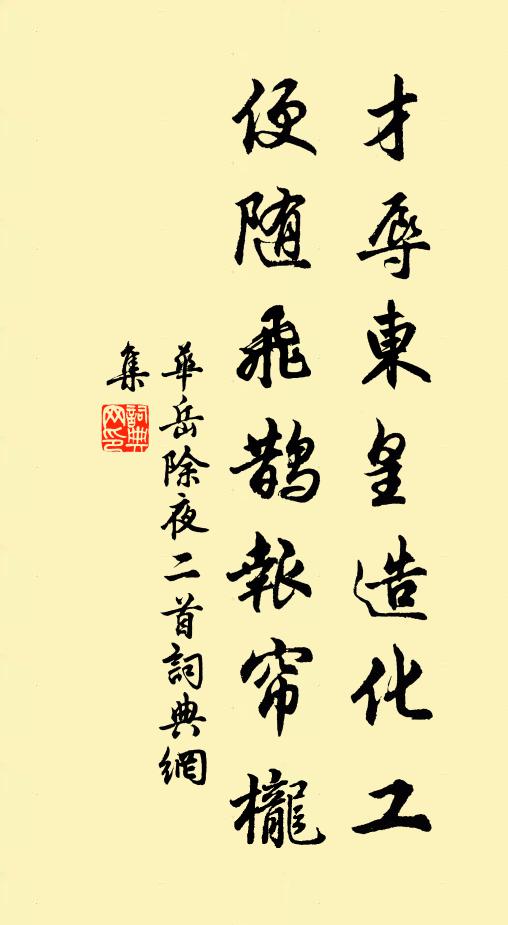 才辱東皇造化工
便随飛鵲報帘櫳
華岳除夜二首詞典網
集
詞典
网印